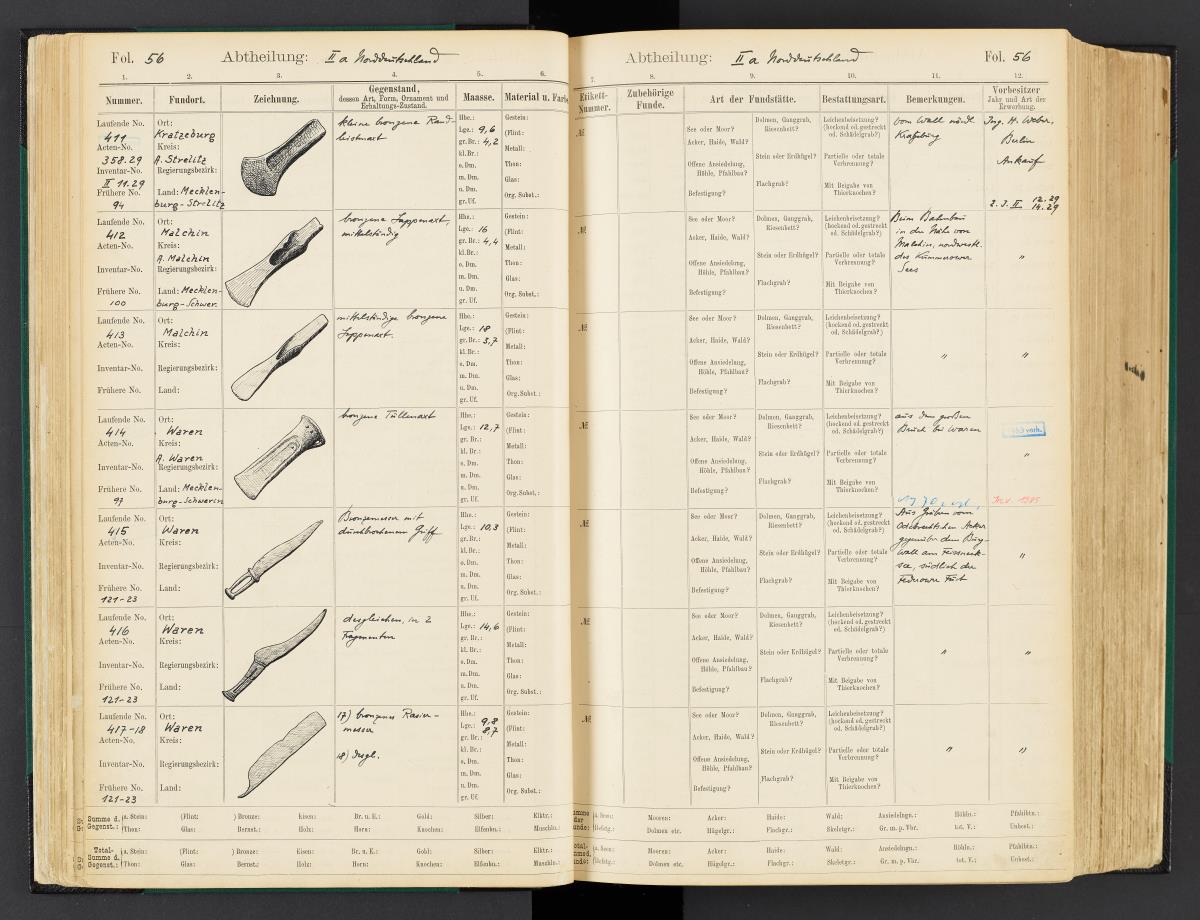 Fol. 56 Abtheilung: II a Norddeutschland
1. 2. 3. 4. 5. 6.
Nummer. Fundort. Zeichnung. Gegenstand, dessen Art, Form, Ornament und Erhaltungs-Zustand. Maasse. Material u. Farbe
Laufende No. 411
Acten-No. 358.29
Inventar-No. II 11.29
Frühere No. 94
Ort: Kratzeburg
Kreis: A. Strelitz
Regierungsbezirk:
Land: Mecklen-
burg-Strelitz
kleine bronzene Rand-
leistenaxt
Hhe.:
Lge.: 9,6
gr. Br.: 4,2
kl. Br.:
o. Dm.
m. Dm.
u. Dm.
gr. Uf.
Gestein:
(Flint:
Metall:
Thon:
Glas:
Org. Subst.:
Laufende No. 412
Acten-No.
Inventar-No.
Frühere No. 100
Ort: Malchin
Kreis: A. Malchin
Regierungsbezirk:
Land: Mecklen-
burg-Schwer.
bronzene Lappenaxt,
mittelständig
Hhe.:
Lge.: 16
gr. Br.: 4,4
kl. Br.:
o. Dm.
m. Dm.
u. Dm.
gr. Uf.
Gestein:
(Flint:
Metall:
Thon:
Glas:
Org. Subst.:
Laufende No. 413
Acten-No.
Inventar-No.
Frühere No.
Ort: Malchin
Kreis:
Regierungsbezirk:
Land:
mittelständige bronzene
Lappenaxt.
Hhe.:
Lge.: 18
gr. Br.: 3,7
kl. Br.:
o. Dm.
m. Dm.
u. Dm.
gr. Uf.
Gestein:
(Flint:
Metall:
Thon:
Glas:
Org. Subst.:
Laufende No. 414
Acten-No.
Inventar-No.
Frühere No. 97
Ort: Waren
Kreis:
A. Waren
Regierungsbezirk:
Land: Mecklen-
burg-Schwerin
bronzene Tüllenaxt
Hhe.:
Lge.: 12,7
gr. Br.:
kl. Br.:
o. Dm.
m. Dm.
u. Dm.
gr. Uf.
Gestein:
(Flint:
Metall:
Thon:
Glas:
Org. Subst.:
Laufende No. 415
Acten-No.
Inventar-No.
Frühere No. 121-23
Ort: Waren
Kreis:
Regierungsbezirk:
Land:
Bronzemesser mit
durchbrochenem Griff
Hhe.:
Lge.: 10,3
gr. Br.:
kl. Br.:
o. Dm.
m. Dm.
u. Dm.
gr. Uf.
Gestein:
(Flint:
Metall:
Thon:
Glas:
Org. Subst.:
Laufende No. 416
Acten-No.
Inventar-No.
Frühere No. 121-23
Ort: Waren
Kreis:
Regierungsbezirk:
Land:
desgleichen, in 2
Fragmenten
Hhe.:
Lge.: 14,6
gr. Br.:
kl. Br.:
o. Dm.
m. Dm.
u. Dm.
gr. Uf.
Gestein:
(Flint:
Metall:
Thon:
Glas:
Org. Subst.:
Laufende No. 417-18
Acten-No.
Inventar-No.
Frühere No. 121-23
Ort: Waren
Kreis:
Regierungsbezirk:
Land:
17) bronzenes Rasier-
messer
18) desgl.
Hhe.:
Lge.: 9,8
8,7
gr. Br.:
kl. Br.:
o. Dm.
m. Dm.
u. Dm.
gr. Uf.
Gestein:
(Flint:
Metall:
Thon:
Glas:
Org. Subst.:
Summe d. Gegenst.: (a. Stein: (Flint: ) Bronze: Eisen: Br. u. E.: Gold: Silber: Elktr.:
Thon: Glas: Bernst.: Holz: Horn: Knochen: Elfenbn.: Muschln.:
Total-Summe d. Gegenst.: (a. Stein: (Flint: ) Bronze: Eisen: Br. u. E.: Gold: Silber: Elktr.:
Thon: Glas: Bernst.: Holz: Horn: Knochen: Elfenbn.: Muschln.:
Abtheilung: II a Norddeutschland Fol. 56
7. 8. 9. 10. 11. 12.
Etikett-Nummer. Zubehörige Funde. Art der Fundstätte. Bestattungsart. Bemerkungen. Vorbesitzer Jahr und Art der Erwerbung.
No
See oder Moor?
Acker, Haide, Wald?
Offene Ansiedelung, Höhle, Pfahlbau?
Befestigung?
Dolmen, Ganggrab, Riesenbett?
Stein oder Erdhügel?
Flachgrab?
Leichenbeisetzung? (hockend od. gestreckt od. Schädelgrab?)
Partielle oder totale Verbrennung?
Mit Beigabe von Thierknochen?
vom Wall nördl.
Kratzeburg
Ing. H. Weber,
Berlin
Ankauf
2. J. II 12.29
14.29
No
See oder Moor?
Acker, Haide, Wald?
Offene Ansiedelung, Höhle, Pfahlbau?
Befestigung?
Dolmen, Ganggrab, Riesenbett?
Stein oder Erdhügel?
Flachgrab?
Leichenbeisetzung? (hockend od. gestreckt od. Schädelgrab?)
Partielle oder totale Verbrennung?
Mit Beigabe von Thierknochen?
Beim Bahnbau
in der Nähe von
Malchin, nordwestl.
des Kummerower
Sees
"
No
See oder Moor?
Acker, Haide, Wald?
Offene Ansiedelung, Höhle, Pfahlbau?
Befestigung?
Dolmen, Ganggrab, Riesenbett?
Stein oder Erdhügel?
Flachgrab?
Leichenbeisetzung? (hockend od. gestreckt od. Schädelgrab?)
Partielle oder totale Verbrennung?
Mit Beigabe von Thierknochen?
" "
No
See oder Moor?
Acker, Haide, Wald?
Offene Ansiedelung, Höhle, Pfahlbau?
Befestigung?
Dolmen, Ganggrab, Riesenbett?
Stein oder Erdhügel?
Flachgrab?
Leichenbeisetzung? (hockend od. gestreckt od. Schädelgrab?)
Partielle oder totale Verbrennung?
Mit Beigabe von Thierknochen?
aus dem großen
Bruch bei Waren
vorh.
"
No
See oder Moor?
Acker, Haide, Wald?
Offene Ansiedelung, Höhle, Pfahlbau?
Befestigung?
Dolmen, Ganggrab, Riesenbett?
Stein oder Erdhügel?
Flachgrab?
Leichenbeisetzung? (hockend od. gestreckt od. Schädelgrab?)
Partielle oder totale Verbrennung?
Mit Beigabe von Thierknochen?
Aus Gräben vom
Acker
gegenüber dem Burg-
wall am Feisneck-
see, südlich der
Federower Fort
"
No
See oder Moor?
Acker, Haide, Wald?
Offene Ansiedelung, Höhle, Pfahlbau?
Befestigung?
Dolmen, Ganggrab, Riesenbett?
Stein oder Erdhügel?
Flachgrab?
Leichenbeisetzung? (hockend od. gestreckt od. Schädelgrab?)
Partielle oder totale Verbrennung?
Mit Beigabe von Thierknochen?
" "
No
See oder Moor?
Acker, Haide, Wald?
Offene Ansiedelung, Höhle, Pfahlbau?
Befestigung?
Dolmen, Ganggrab, Riesenbett?
Stein oder Erdhügel?
Flachgrab?
Leichenbeisetzung? (hockend od. gestreckt od. Schädelgrab?)
Partielle oder totale Verbrennung?
Mit Beigabe von Thierknochen?
" "
a. Seen: Mooren: Acker: Haide: Wald: Ansiedelngn.: Höhln.: Pfahlbtn.:
Befstg.: Dolmen etc. Hügelgr.: Flachgr.: Skeletgr.: Gr. m. p. Vbr. tot. V.: Unbest.:
a. Seen: Mooren: Acker: Haide: Wald: Ansiedelngn.: Höhln.: Pfahlbtn.:
Befstg.: Dolmen etc. Hügelgr.: Flachgr.: Skeletgr.: Gr. m. p. Vbr. tot. V.: Unbest.: